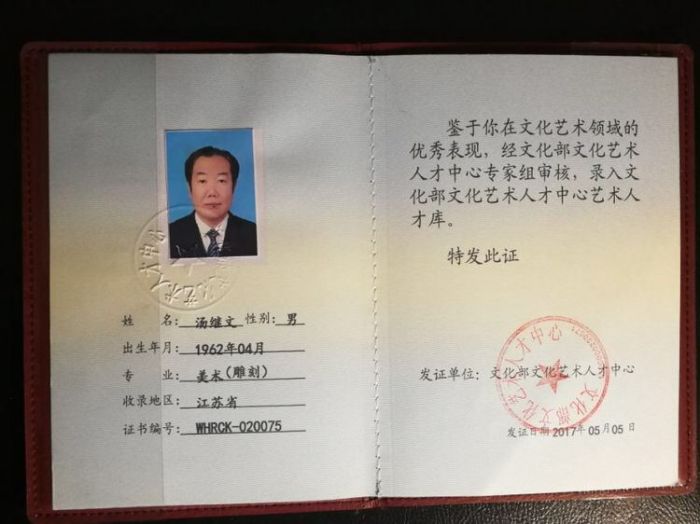 姓 名: 汤继文 性别: 男
出生年月: 1962年04月
专 业: 美术(雕刻)
收录地区: 江苏省
证书编号: WHRCK-020075
鉴于你在文化艺术领域的
优秀表现，经文化部文化艺术
人才中心专家组审核，录入文
化部文化艺术人才中心艺术人
才库。
特发此证
发证单位: 文化部文化艺术人才中心
发证日期 2017年05月05日
文化部文化艺术人才中心